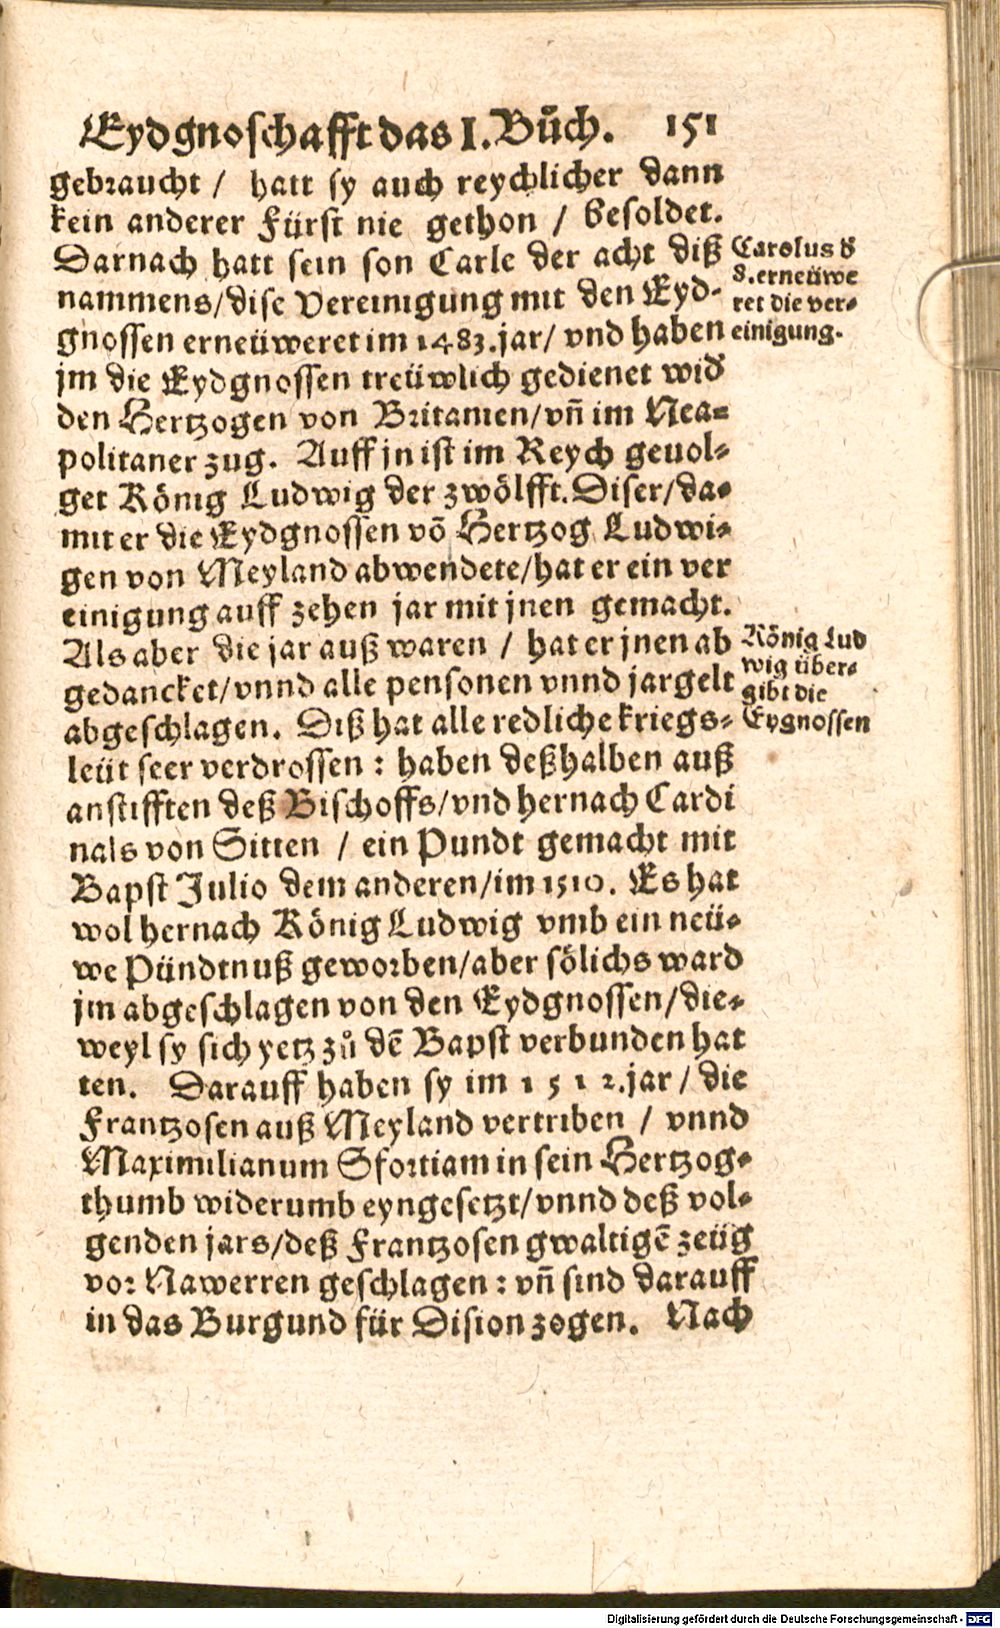 Eydgnoschafft das I. Bůch. 151
gebraucht / hatt sy auch reychlicher dann
kein anderer Fürst nie gethon / besoldet.
Darnach hatt sein son Carle der acht diß
nammens/dise Vereinigung mit den Eyd-
gnossen erneüweret im 1483.jar/ vnd haben
jm die Eydgnossen treüwlich gedienet wid
den Hertzogen von Britanien/vñ im Nea-
politaner zug. Auff jn ist im Reych geuol-
get König Ludwig der zwölfft. Diser/da-
mit er die Eydgnossen võ Hertzog Ludwi-
gen von Meyland abwendete/hat er ein ver
einigung auff zehen jar mit jnen gemacht.
Als aber die jar auß waren / hat er jnen ab
gedancket/vnnd alle pensonen vnnd jargelt
abgeschlagen. Diß hat alle redliche kriegs-
leüt seer verdrossen : haben deßhalben auß
anstifften deß Bischoffs/vnd hernach Cardi
nals von Sitten / ein Pundt gemacht mit
Bapst Julio dem anderen/im 1510. Es hat
wol hernach König Ludwig vmb ein neü-
we Pündtnuß geworben/aber sölichs ward
jm abgeschlagen von den Eydgnossen/die-
weyl sy sich yetz zů dẽ Bapst verbunden hat
ten. Darauff haben sy im 1512.jar / die
Frantzosen auß Meyland vertriben / vnnd
Maximilianum Sfortiam in sein Hertzog-
thumb widerumb eyngesetzt/vnnd deß vol-
genden jars/deß Frantzosen gwaltigẽ zeüg
vor Nawerren geschlagen : vñ sind darauff
in das Burgund für Dision zogen. Nach
Carolus d
8.erneüwe
ret die ver-
einigung.
König Lud
wig über-
gibt die
Eygnossen
Digitalisierung gefördert durch die Deutsche Forschungsgemeinschaft - DFG